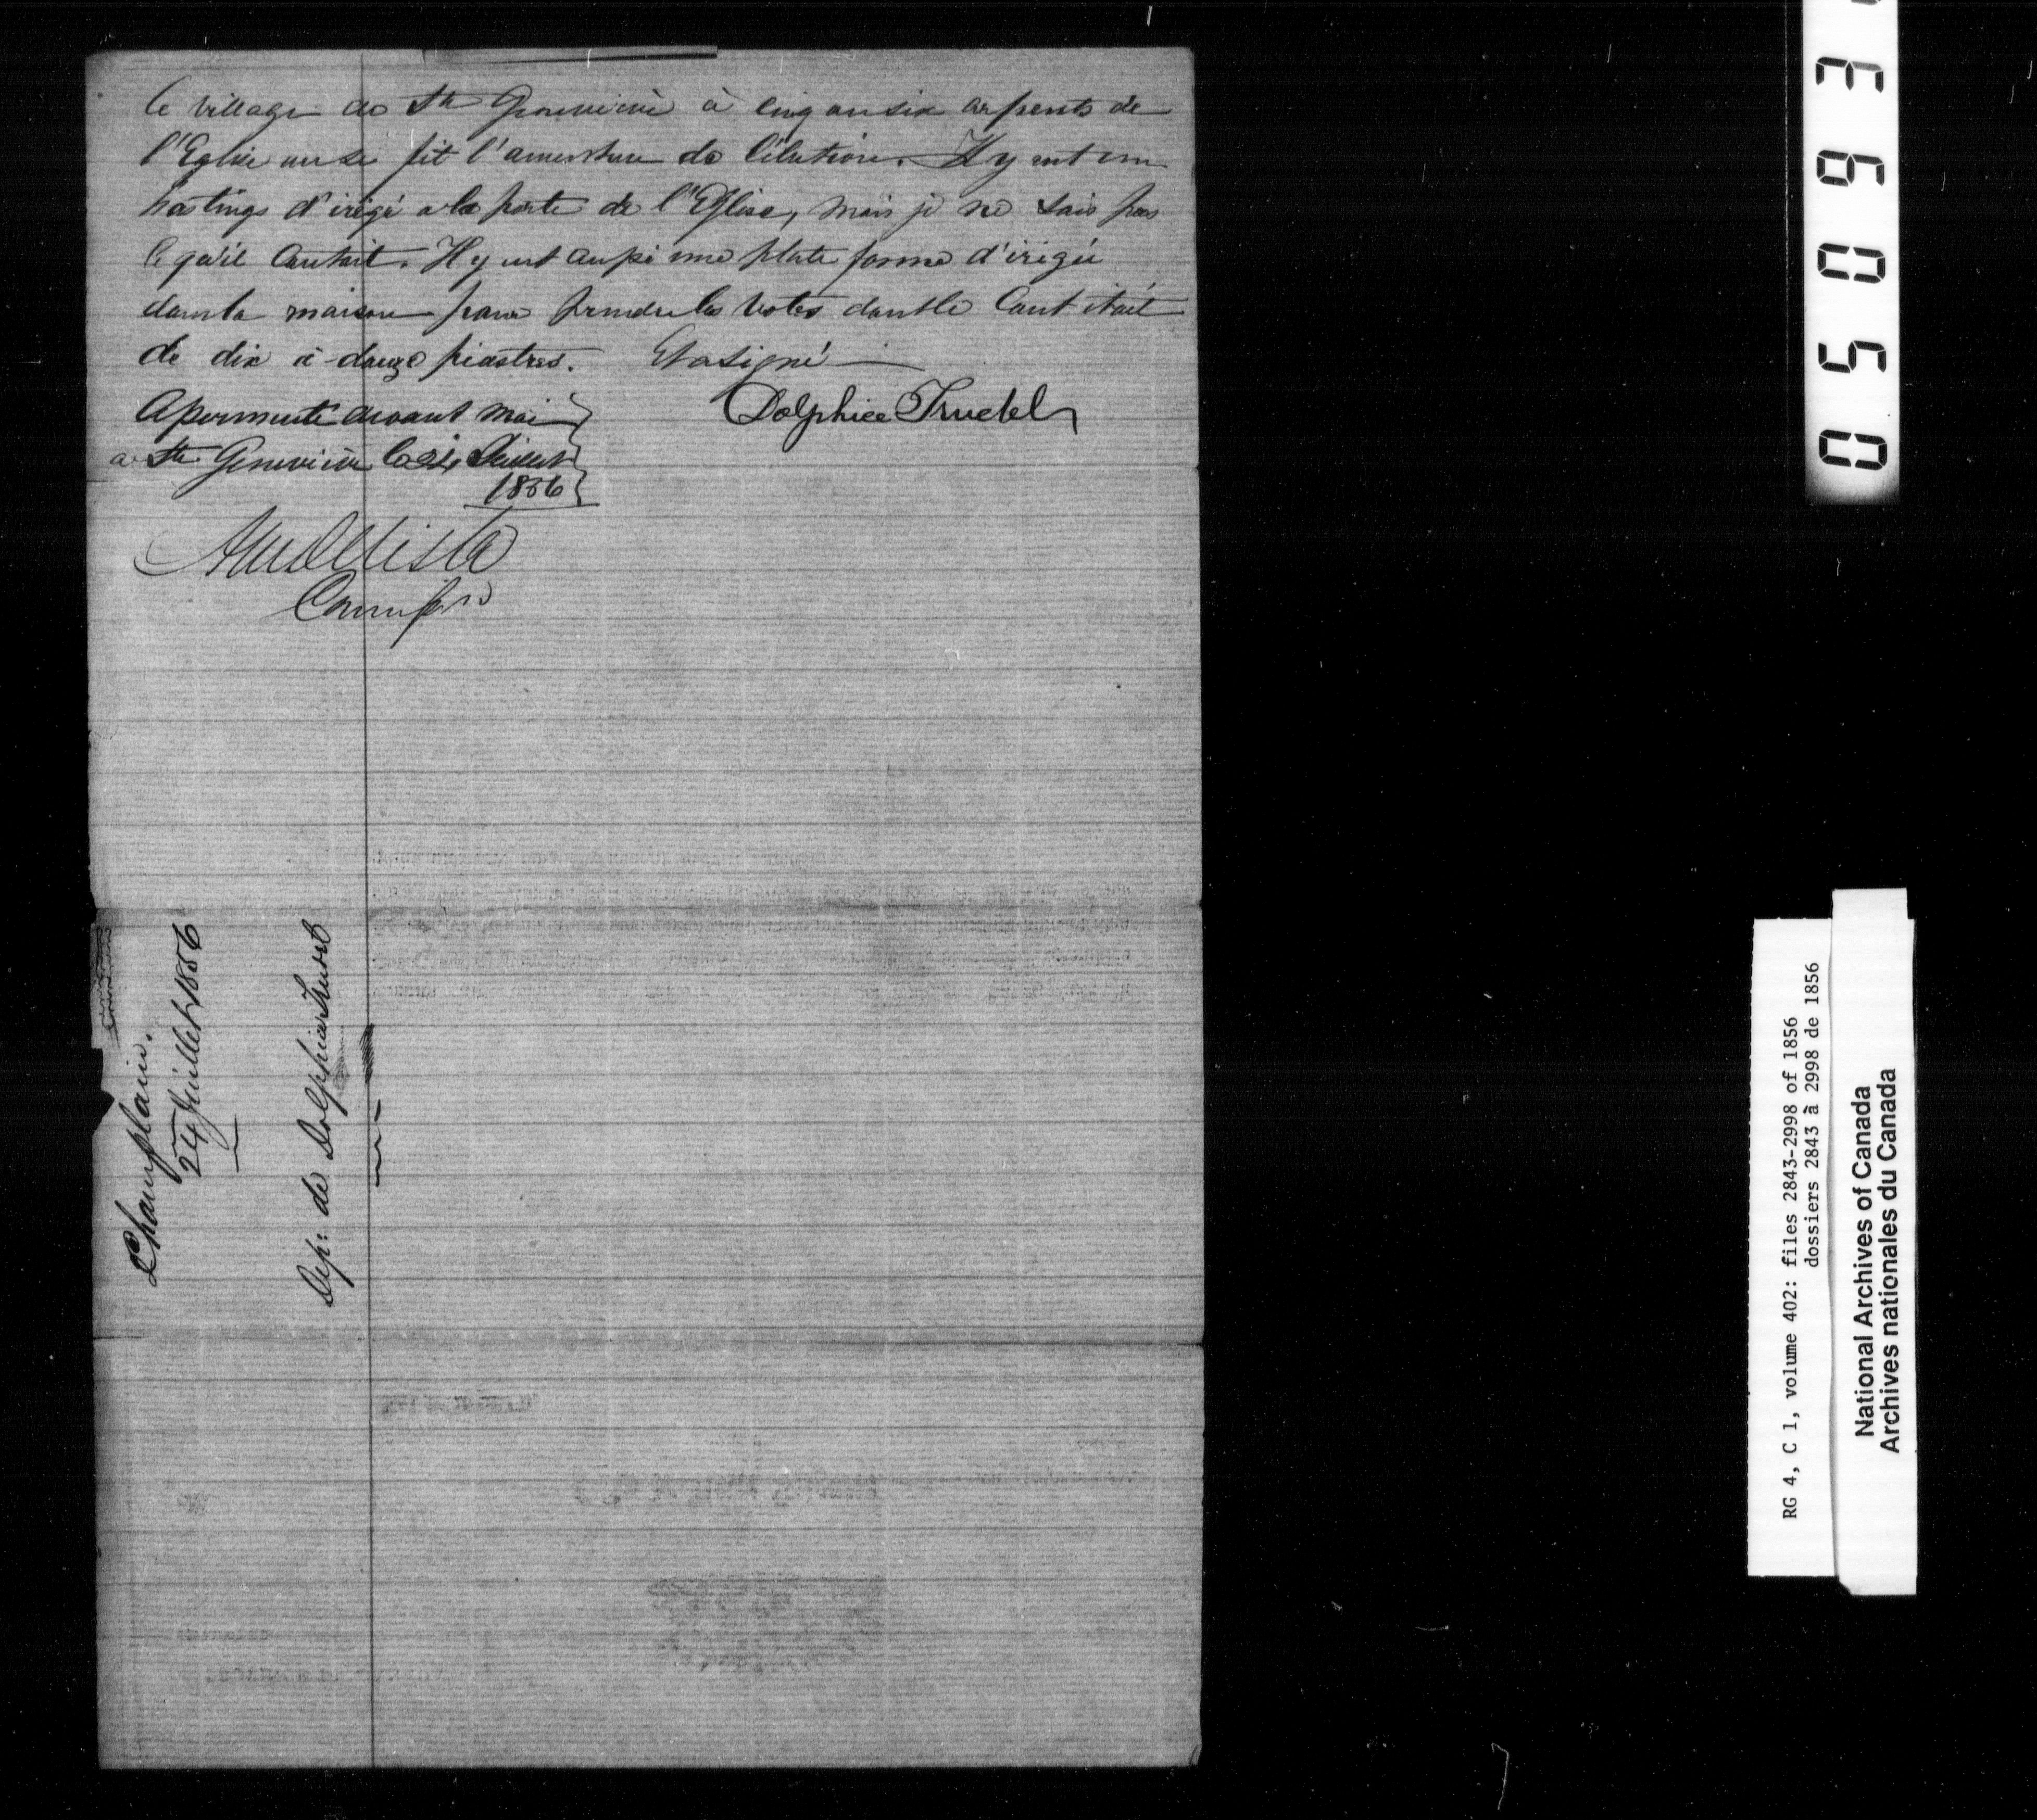 le village de Ste Geneviève à cinq ou six arpents de
l'Eglise ou se fit l'ouverture de l'élection. Il y eut un
hustings d'érigé a la porte de l'Eglise, mais je ne sais pas
ce qu'il coutait. Il y eut aussi une plate forme d'érigée
dans la maison pour prendre les votes dont le cout était
de dix à douze piastres. Et a signé
Assermenté devant moi
Dolphice Trudel
a Ste Geneviève le 24 Juillet
1856
Champlain.
24 Juillet 1856
Dep: de Dolphice Trudel
05093
RG 4, C 1, volume 402: files 2843-2998 of 1856
dossiers 2843 à 2998 de 1856
National Archives of Canada
Archives nationales du Canada